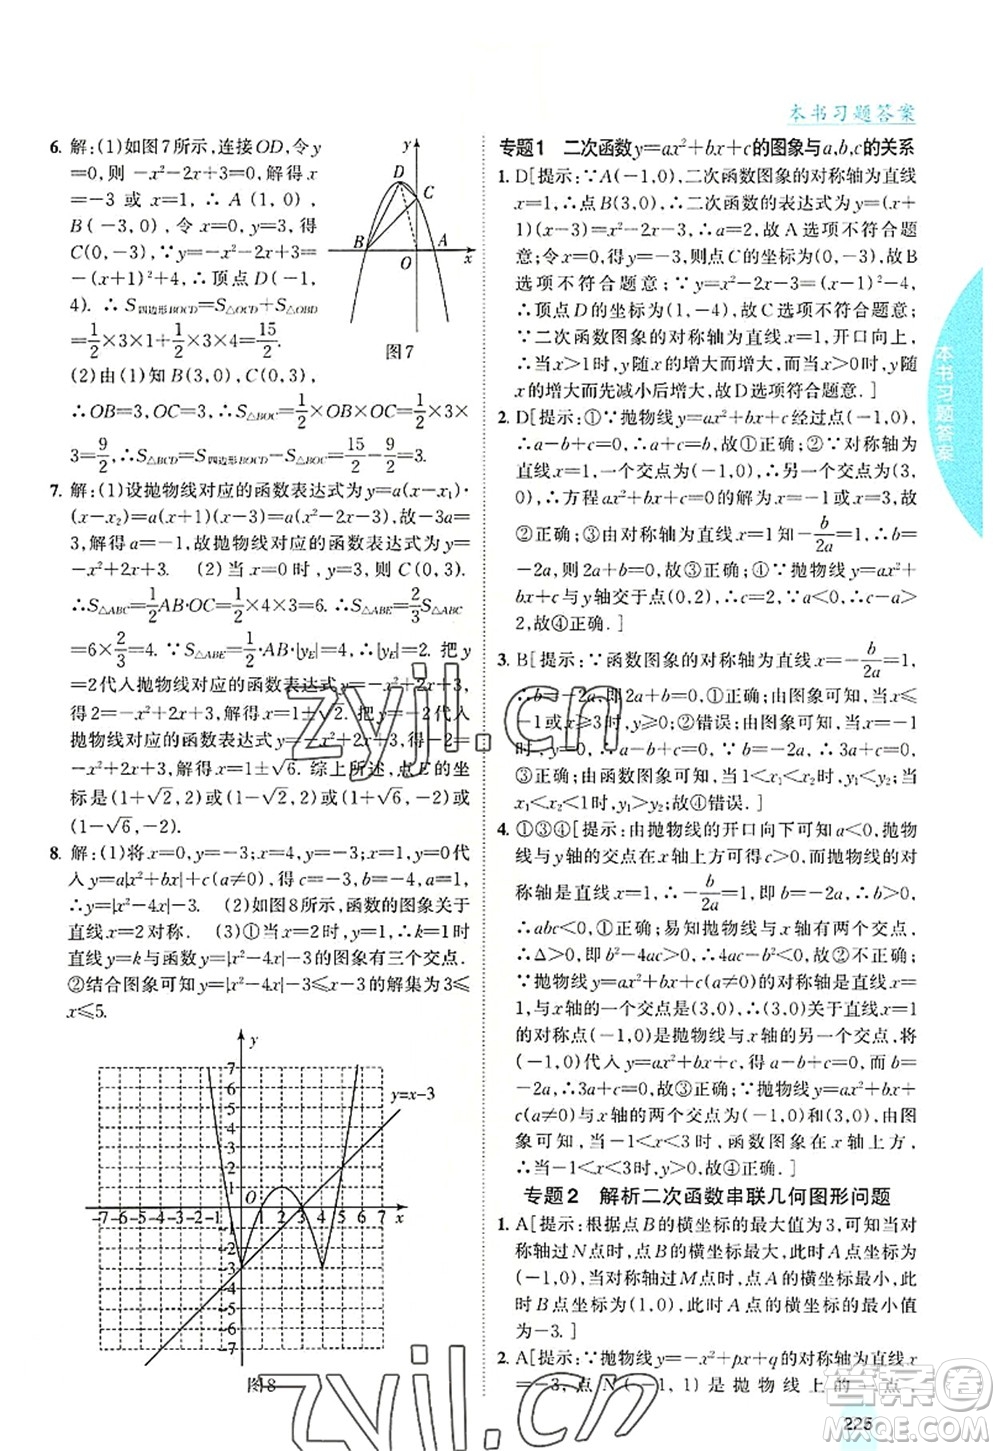 本书习题答案
6. 解:(1)如图7所示,连接OD,令y
=0,则-x²-2x+3=0,解得x
=-3 或 x=1, ∴A(1,0),
B(-3,0).令x=0,y=3,得
C(0,3),∵y=-x²-2x+3=
-(x+1)²+4,∴顶点D(-1,
4). ∴S四边形BOCD=S△OCD+S△OBD
=1/2×3×1+1/2×3×4=15/2.
y
D
C
B
A
O
x
图7
(2)由(1)知B(-3,0),C(0,3),
∴OB=3,OC=3,∴S△BOC=1/2×OB×OC=1/2×3×
3=9/2,∴S△BCD=S四边形BOCD-S△BOC=15/2-9/2=3.
7. 解:(1)设抛物线对应的函数表达式为y=a(x-x₁)·
(x-x₂)=a(x+1)(x-3)=a(x²-2x-3),故-3a=
3,解得a=-1,故抛物线对应的函数表达式为y=
-x²+2x+3. (2)当x=0时,y=3,则C(0,3).
∴S△ABC=1/2AB·OC=1/2×4×3=6.∴S△ABE=2/3S△ABC
=6×2/3=4.∵S△ABE=1/2·AB·|yE|=4,∴|yE|=2. 把
y=2代入抛物线对应的函数表达式y=-x²+2x+3,
得2=-x²+2x+3,解得x=1±√2. 把y=-2代入
抛物线对应的函数表达式y=-x²+2x+3,得-2=
-x²+2x+3,解得x=1±√6. 综上所述,点E的坐
标是(1+√2,2)或(1-√2,2)或(1+√6,-2)或
(1-√6,-2).
8. 解:(1)将x=0,y=-3;x=4,y=-3;x=1,y=0代
入函数y=a|x²+bx|+c(a≠0),得c=-3,a=1,b=-4.
∴y=|x²-4x|-3. (2)如图8所示,函数的图象关于
直线x=2对称. (3)①当x=0或x=2或x=4时,
直线y=k与函数y=|x²-4x|-3的图象有三个交点.
②结合图象可知y=|x²-4x|-3≤x-3的解集为3≤
x≤5.
y
7
6
5
4
3
2
1
y=x-3
-7-6-5-4-3-2-1
O
1 2 3 4 5 6 7 x
-2
-3
-4
-5
-6
-7
图8
专题1 二次函数y=ax²+bx+c的图象与a,b,c的关系
1. D[提示:∵A(-1,0),二次函数图象的对称轴为直线
x=1,∴点B(3,0),∴二次函数的表达式为y=(x+
1)(x-3)=x²-2x-3,∴a=2,故A选项不符合题
意;令x=0,则y=-3,∴点C的坐标为(0,-3),故B
选项不符合题意;∵y=x²-2x-3=(x-1)²-4,
∴顶点D的坐标为(1,-4),故C选项不符合题意;
∵二次函数图象的对称轴为直线x=1,开口向上,
∴当x>1时,y随x的增大而增大,当x>-1时,y随
x的增大而先减小后增大,故D选项符合题意.]
2. D[提示:①∵抛物线y=ax²+bx+c经过点(-1,0),
∴a-b+c=0,∴b=a+c,故①正确;②∵对称轴为
直线x=1,一个交点为(-1,0),∴另一个交点为(3,
0),∴方程ax²+bx+c=0的解为x=-1或x=3,故
②正确;③由对称轴为直线x=1知-b/2a=1,∴b=
-2a,则2a+b=0,故③正确;④∵抛物线y=ax²+
bx+c与y轴交于点(0,2),∴c=2,∵a<0,∴c-a>
2,故④正确.]
3. B[提示:∵函数图象的对称轴为直线x=-b/2a=1,
∴b=-2a,∴b+2a=0,①正确;由图象可知,当x≤
-1或x≥3时,y≥0;②错误;由图象可知,当x=-1
时,y=0,即a-b+c=0,∵b=-2a,∴3a+c=0,
③正确;由函数图象可知,若x₁<x₂<1,则y₁>y₂;若
x₁<1<x₂<3时,y₁>y₂;故④错误.]
4. ①③④[提示:由抛物线的开口向下可知a<0,抛物
线与y轴的交点在x轴上方可得c>0,而抛物线的对
称轴是直线x=1,∴-b/2a=1,即b=-2a,∴b>0,
∴abc<0,故①正确;易知抛物线与x轴有两个交点,
∴Δ>0,即b²-4ac>0,∴4ac-b²<0,故②错误;
∵抛物线的对称轴是直线x=1,与x轴的一个交点是
(-1,0),∴与x轴的另一个交点是(3,0),
∴当-1<x<3时,y>0,故④正确.]
专题2 解析二次函数串联几何图形问题
1. A[提示:根据点B的横坐标的最大值为3,可知当对
称轴过N点时,点B的横坐标最大,∴此时的A点坐
标为(1,0),当对称轴过M点时,点A的横坐标最小,
此时B点坐标为(1,0),此时A点的横坐标的最小值
为-3.]
2. A[提示:∵抛物线y=-x²+px+q的对称轴为直线
x=-3,点N(-1,1)是抛物线上的一点,
225
zyjl.cn
zyjl.cn
答案圈
MXQE.COM
本书习题答案